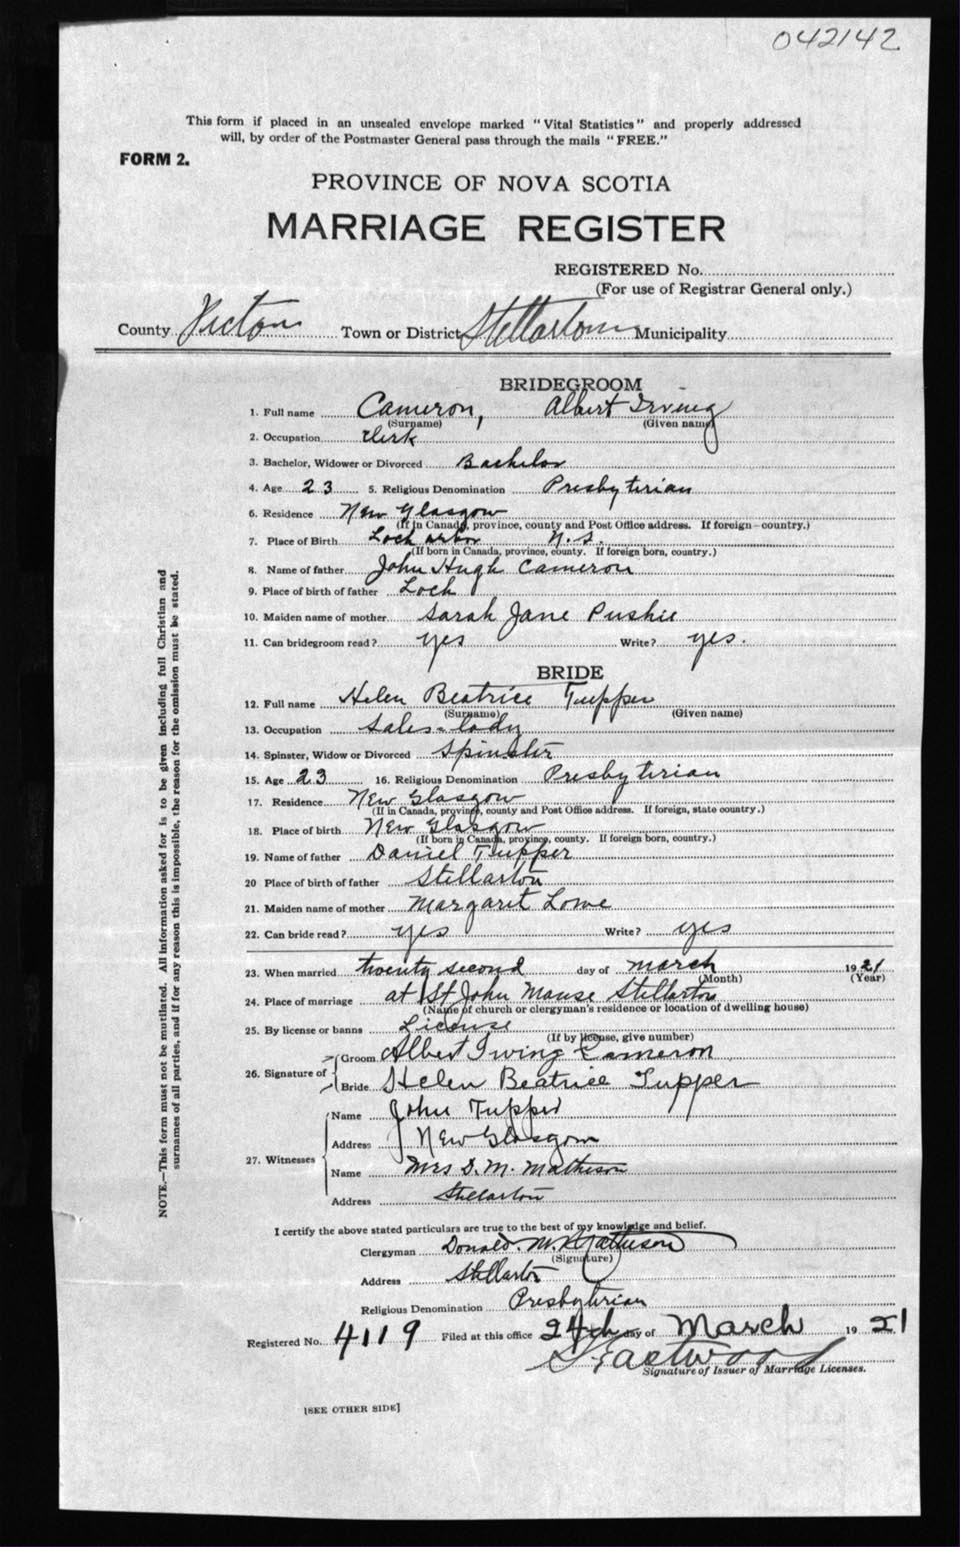 042142
This form if placed in an unsealed envelope marked "Vital Statistics" and properly addressed
will, by order of the Postmaster General pass through the mails "FREE."
FORM 2.
PROVINCE OF NOVA SCOTIA
MARRIAGE REGISTER
REGISTERED No.
(For use of Registrar General only.)
County Pictou Town or District Stellarton Municipality
BRIDEGROOM
1. Full name Cameron, Albert Irving
(Surname) (Given name)
2. Occupation Clerk
3. Bachelor, Widower or Divorced Bachelor
4. Age 23 5. Religious Denomination Presbyterian
6. Residence New Glasgow
(If in Canada, province, county and Post Office address. If foreign—country.)
7. Place of Birth Loch arbor N.S.
(If born in Canada, province, county. If foreign born, country.)
8. Name of father John Hugh Cameron
9. Place of birth of father Loch
10. Maiden name of mother Sarah Jane Pushie
11. Can bridegroom read? yes Write? yes.
BRIDE
12. Full name Helen Beatrice Tupper
(Surname) (Given name)
13. Occupation Sales-lady
14. Spinster, Widow or Divorced Spinster
15. Age 23 16. Religious Denomination Presbyterian
17. Residence New Glasgow
(If in Canada, province, county and Post Office address. If foreign, state country.)
18. Place of birth New Glasgow
(If born in Canada, province, county. If foreign born, country.)
19. Name of father Daniel Tupper
20 Place of birth of father Stellarton
21. Maiden name of mother Margaret Lowe
22. Can bride read? yes Write? yes
23. When married twenty second day of march 1921
(Month) (Year)
24. Place of marriage at St John Manse Stellarton
(Name of church or clergyman's residence or location of dwelling house)
25. By license or banns License
(If by license, give number)
26. Signature of Groom Albert Irving Cameron
Bride Helen Beatrice Tupper
27. Witnesses Name John Tupper
Address New Glasgow
Name Mrs D. M. Matheson
Address Stellarton
I certify the above stated particulars are true to the best of my knowledge and belief.
Clergyman Donald. M. Matheson
(Signature)
Address Stellarton
Religious Denomination Presbyterian
Registered No. 4119 Filed at this office 24th day of March 1921
Eastwood
Signature of Issuer of Marriage Licenses.
[SEE OTHER SIDE]
NOTE.—This form must not be mutilated. All information asked for is to be given including full Christian and
surnames of all parties, and if for any reason this is impossible, the reason for the omission must be stated.